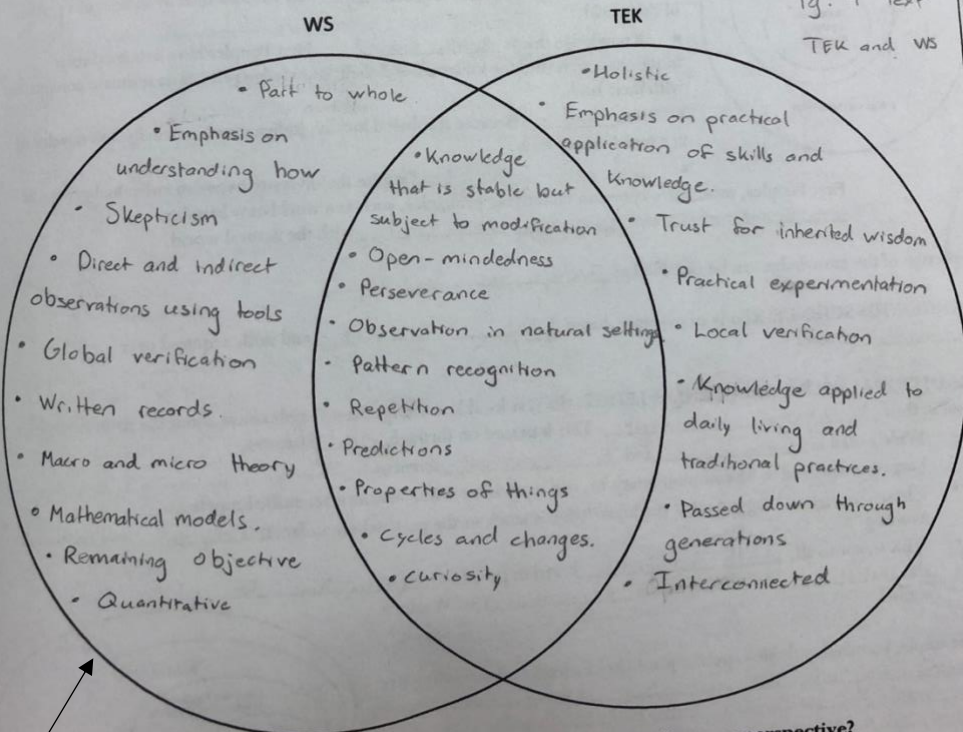 WS
TEK
TEK and WS
• Part to whole
• Emphasis on
understanding how
• Skepticism
• Direct and indirect
observations using tools
• Global verification
• Written records.
• Macro and micro theory
• Mathematical models.
• Remaining objective
• Quantitative
• Knowledge
that is stable but
subject to modification
• Open-mindedness
• Perseverance
• Observation in natural setting
• Pattern recognition
• Repetition
• Predictions
• Properties of things
• Cycles and changes.
• curiosity
• Holistic
• Emphasis on practical
application of skills and
knowledge.
• Trust for inherited wisdom
• Practical experimentation
• Local verification
• Knowledge applied to
daily living and
traditional practices.
• Passed down through
generations
• Interconnected